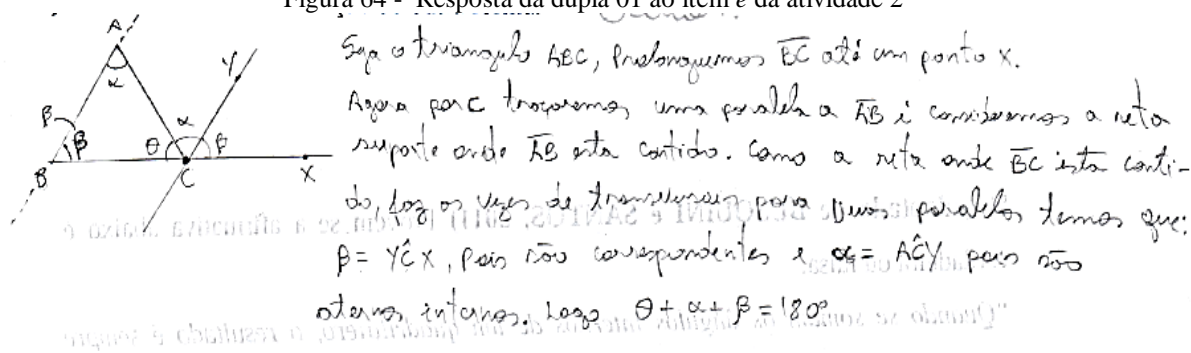 Figura 64 - Resposta da dupla 01 ao item e da atividade 2
A
α
Y
β
β
θ
α
β
B
C
X
Seja o triangulo ABC, Prolonguemos BC até um ponto X.
Agora por C traçaremos uma paralela a AB e consideremos a reta
suporte onde AB esta contido. Como a reta onde BC esta conti-
do, faz as vezes de transversais para duas paralelas temos que:
β = YĈX, Pois são correspondentes e α = AĈY pois são
alternos internos. Logo θ + α + β = 180°